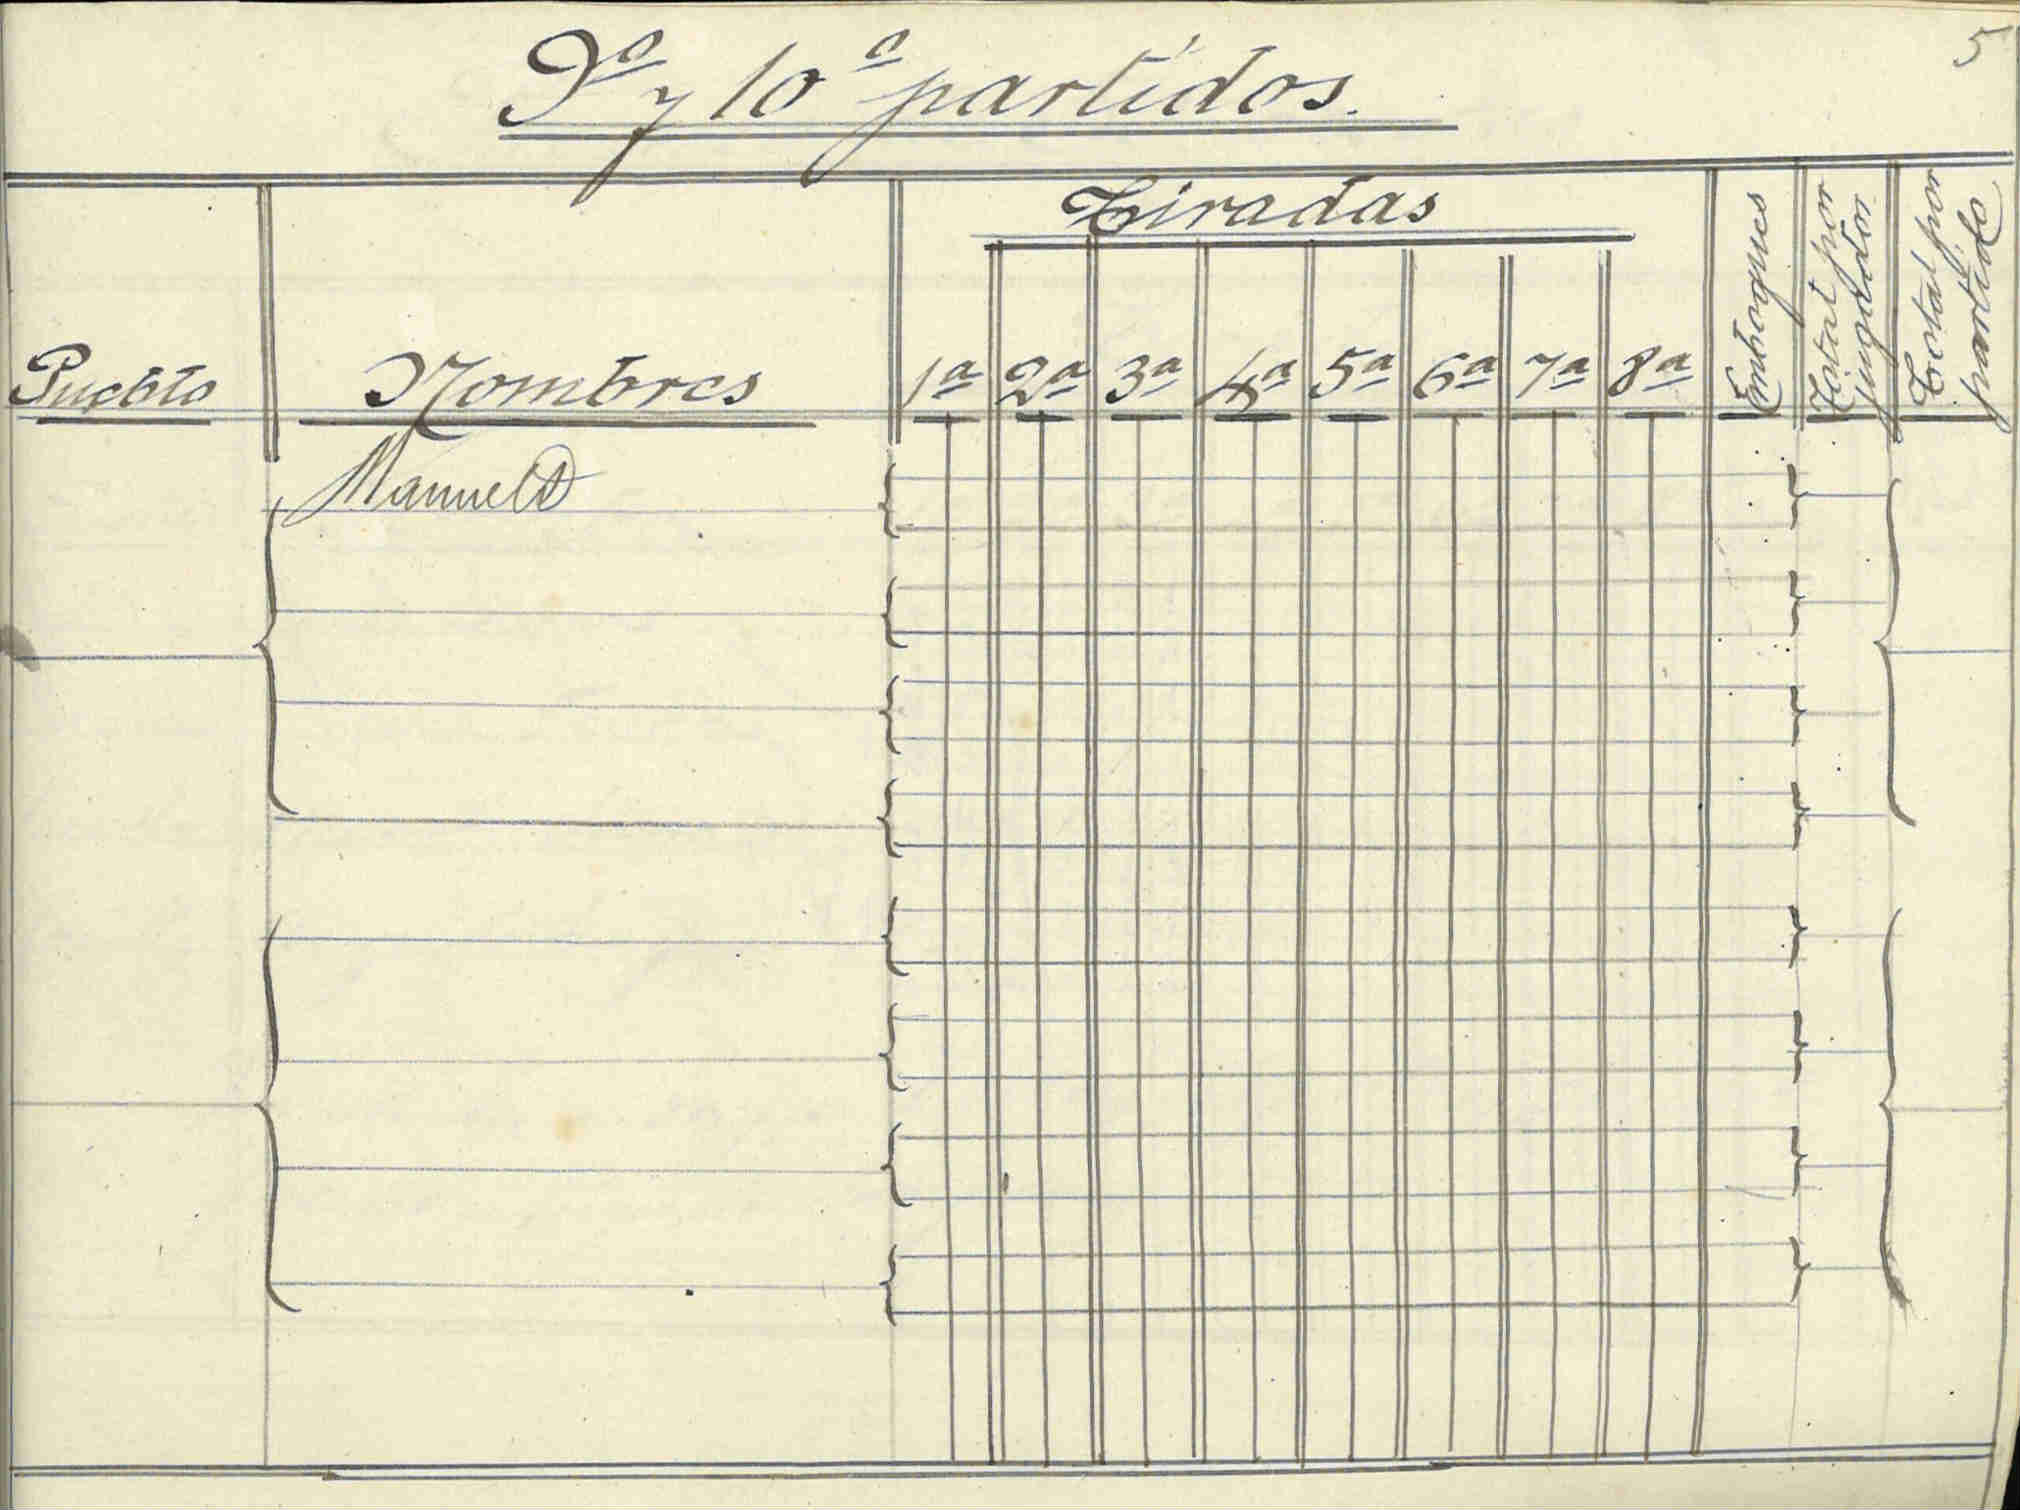 5
9ª y 10ª partidos.
Tiradas
Pueblo
Nombres
1ª 2ª 3ª 4ª 5ª 6ª 7ª 8ª
Emboques
Total por
jugador
Total por
partido
Manuel